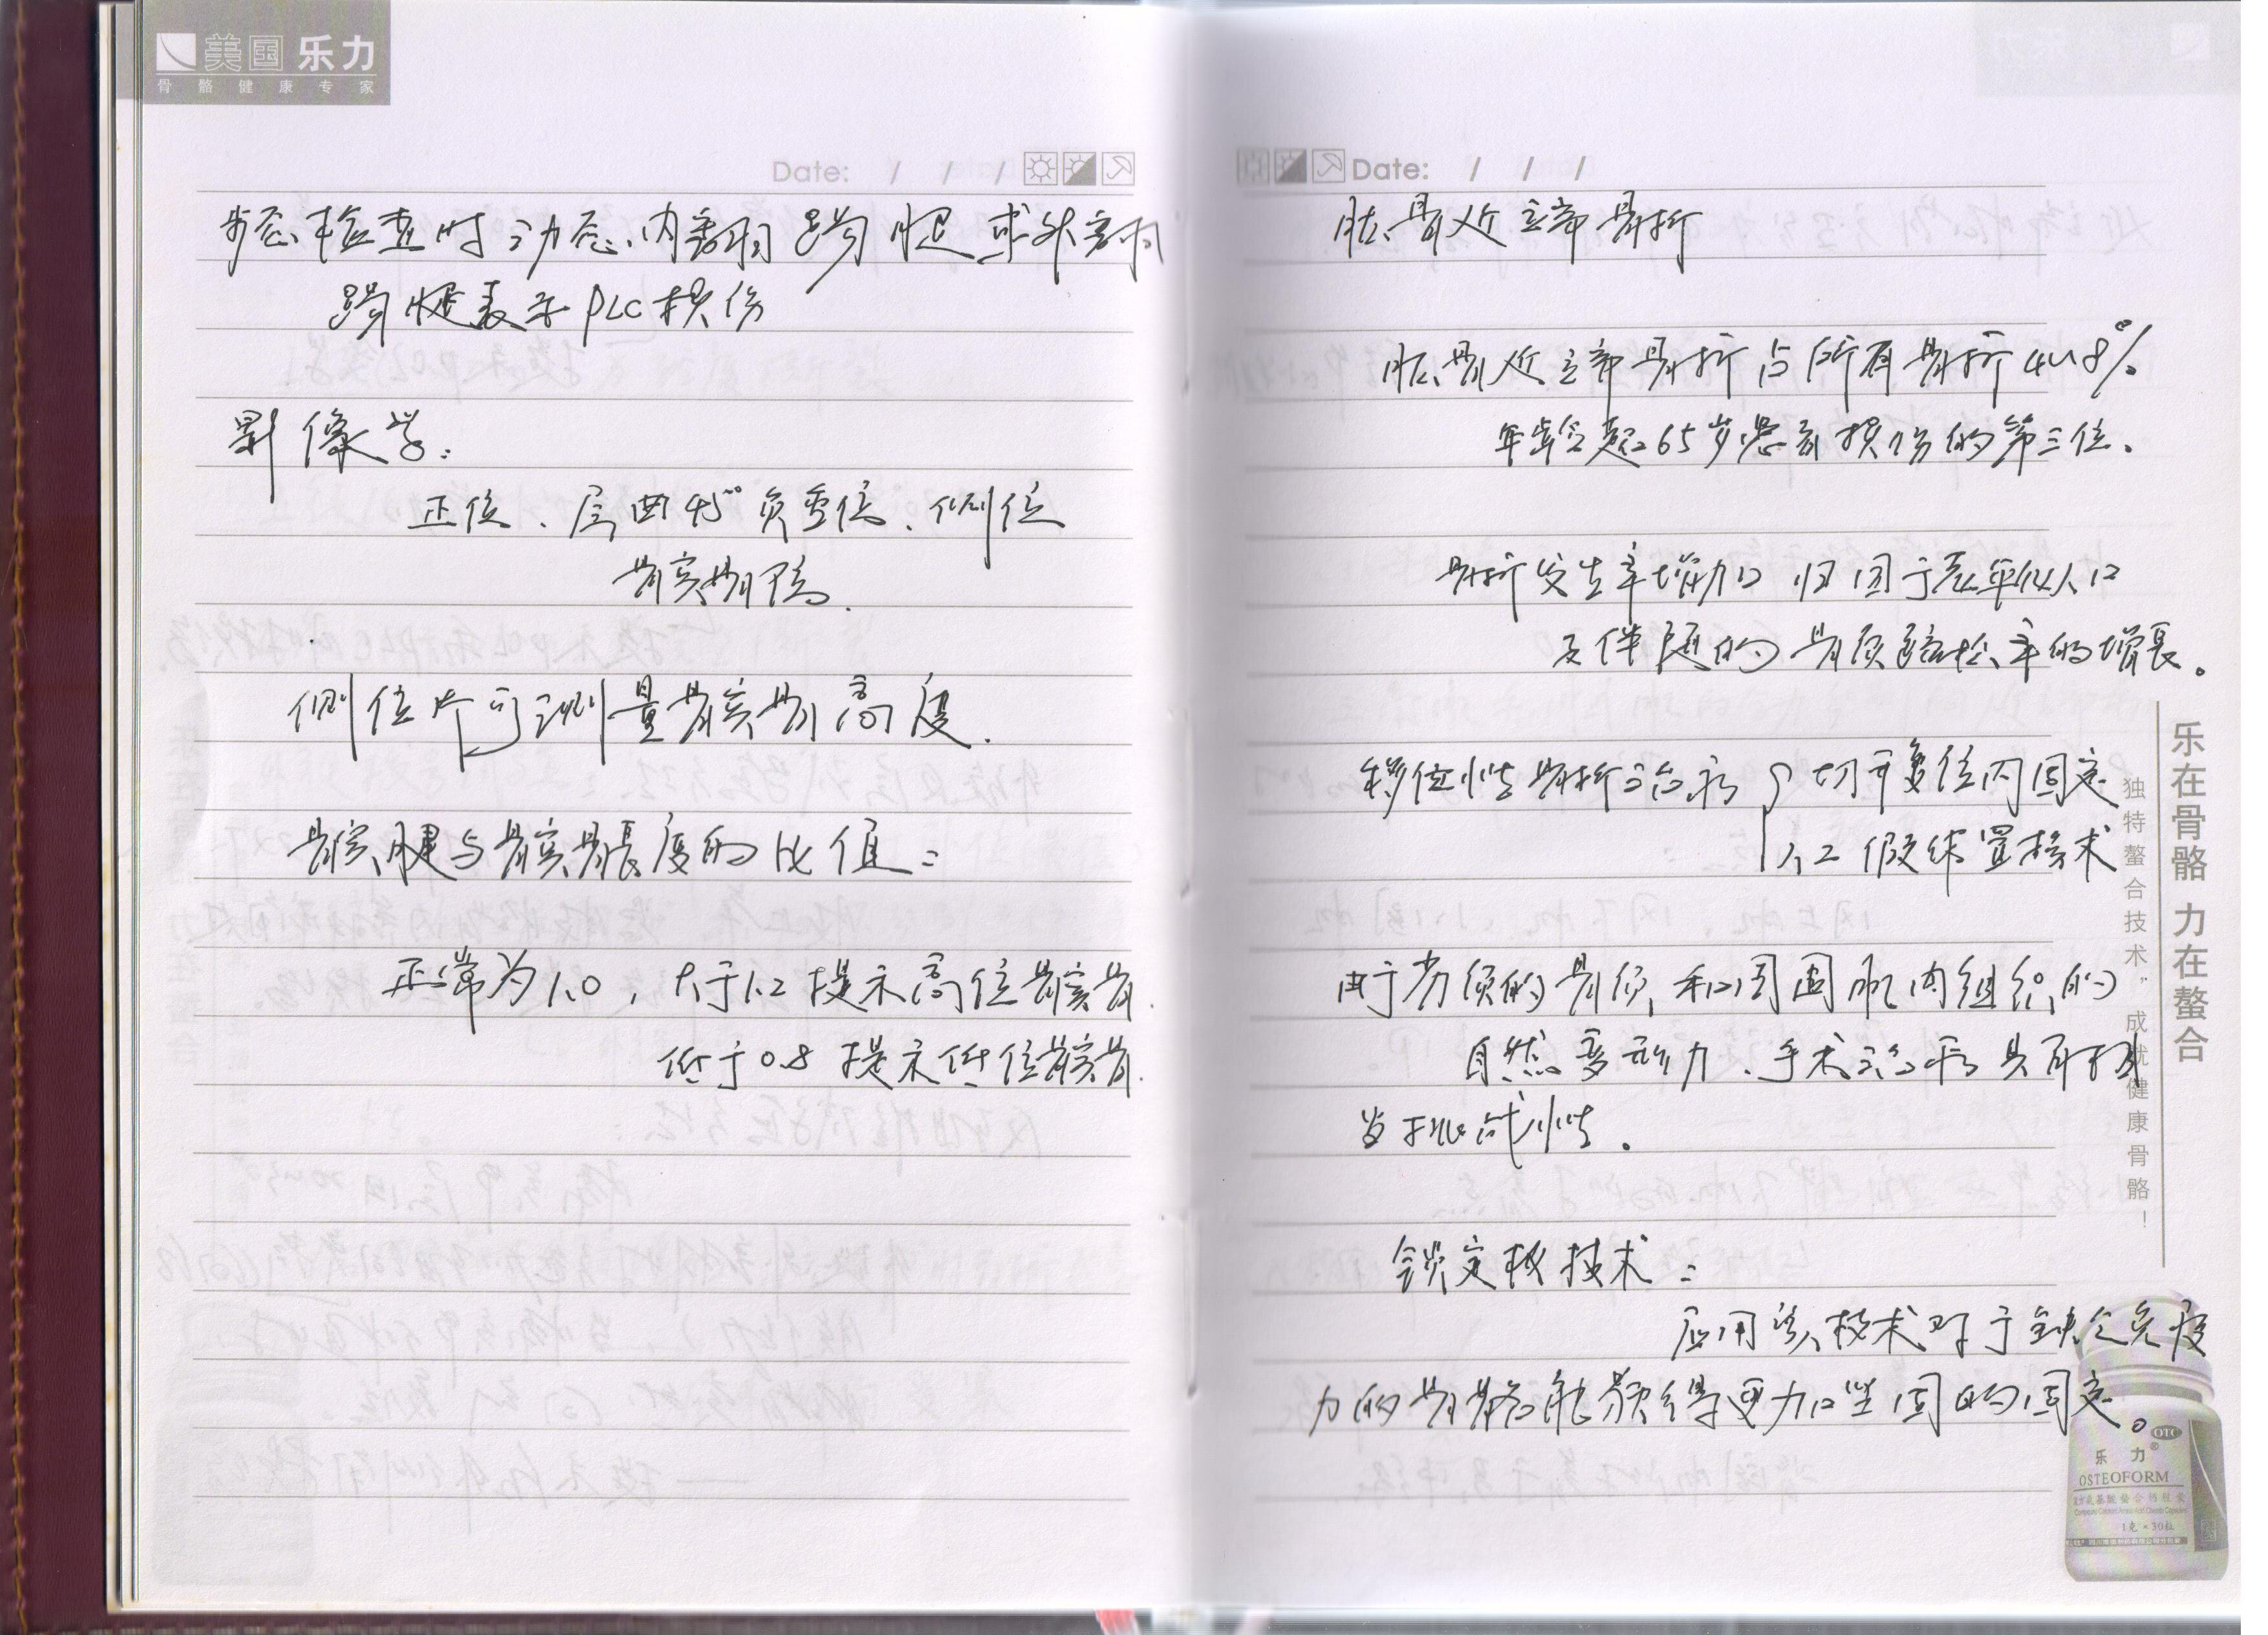 美国乐力
骨骼健康专家
Date: / / /
步态检查时动态内翻 腿或外翻
腿表示PLC损伤
影像学:
正位、屈曲45°负重位、侧位
髌骨
侧位片可测量髌骨高度.
髌腱与髌骨长度的比值:
正常为1.0，大于1.2提示高位髌骨.
低于0.8提示低位髌骨.
Date: / / /
肱骨近端骨折
肱骨近端骨折占所有骨折4~8%
年龄超65岁患者损伤的第三位。
骨折发生率增加归因于老年化人口
及伴随的骨质疏松率的增长。
移位性骨折治疗 切开复位内固定
人工假体置换术
由于劣质的骨质和周围肌肉组织的
自然变形力、手术治疗具有相
当挑战性。
锁定板技术:
应用该技术对于缺乏免疫
力的骨骼能获得更加坚固的固定。
乐在骨骼 力在螯合
独特螯合技术，成就健康骨骼！
OTC
乐力®
OSTEOFORM
1克×30粒